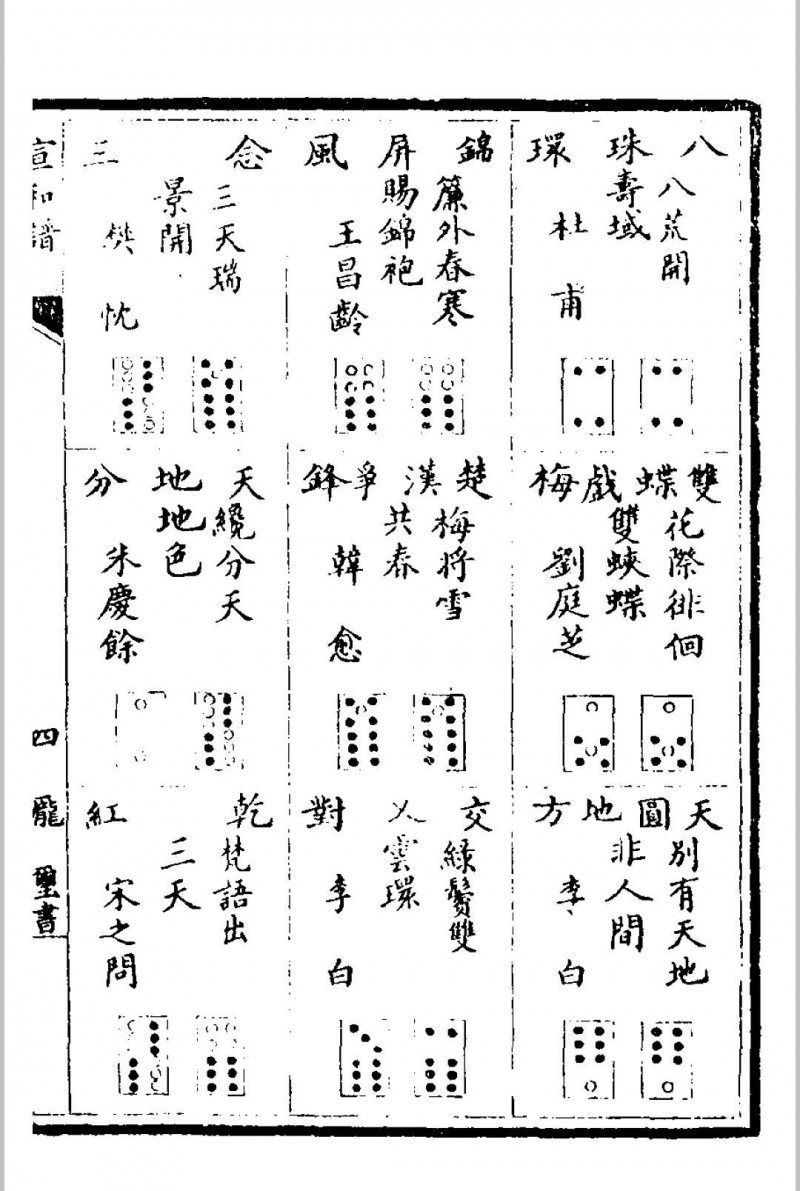 八珠環
八荒開
壽域
杜甫
雙蝶戲梅
花際徘徊
雙蛺蝶
劉庭芝
天圓地方
別有天地
非人間
李白
錦屏風
簾外春寒
賜錦袍
王昌齡
楚漢爭鋒
梅將雪
共春
韓愈
交乂對
綠鬢雙
雲環
李白
念三
三天瑞
景開
樊忱
天地分
纔分天
地色
朱慶餘
乾紅
梵語出
三天
宋之問
宣和譜
四